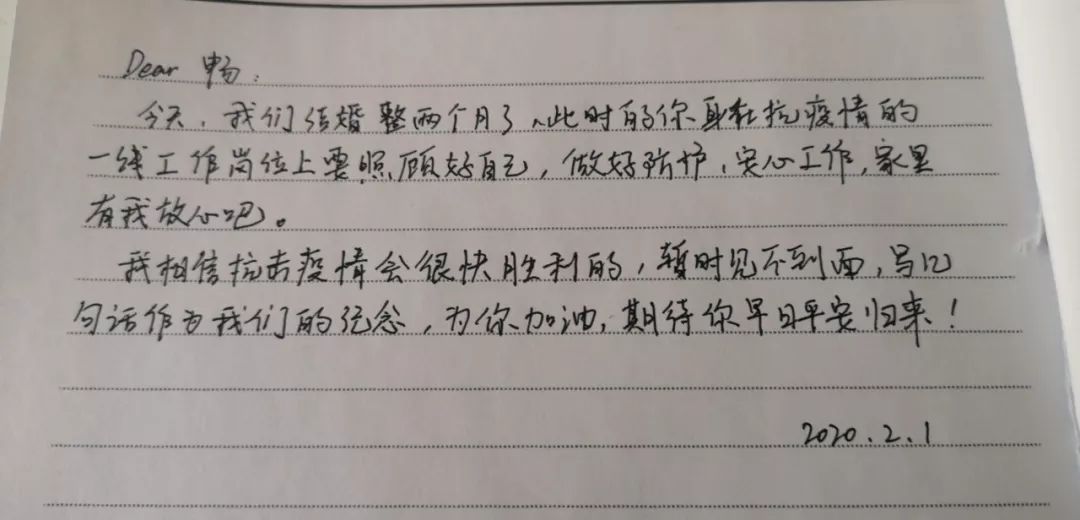 Dear 畅:
今天,我们结婚整两个月了、此时的你身在抗疫情的
一线工作岗位上要照顾好自己,做好防护,安心工作,家里
有我放心吧。
我相信抗击疫情会很快胜利的,暂时见不到面,写几
句话作为我们的纪念,为你加油,期待你早日平安归来!
2020.2.1